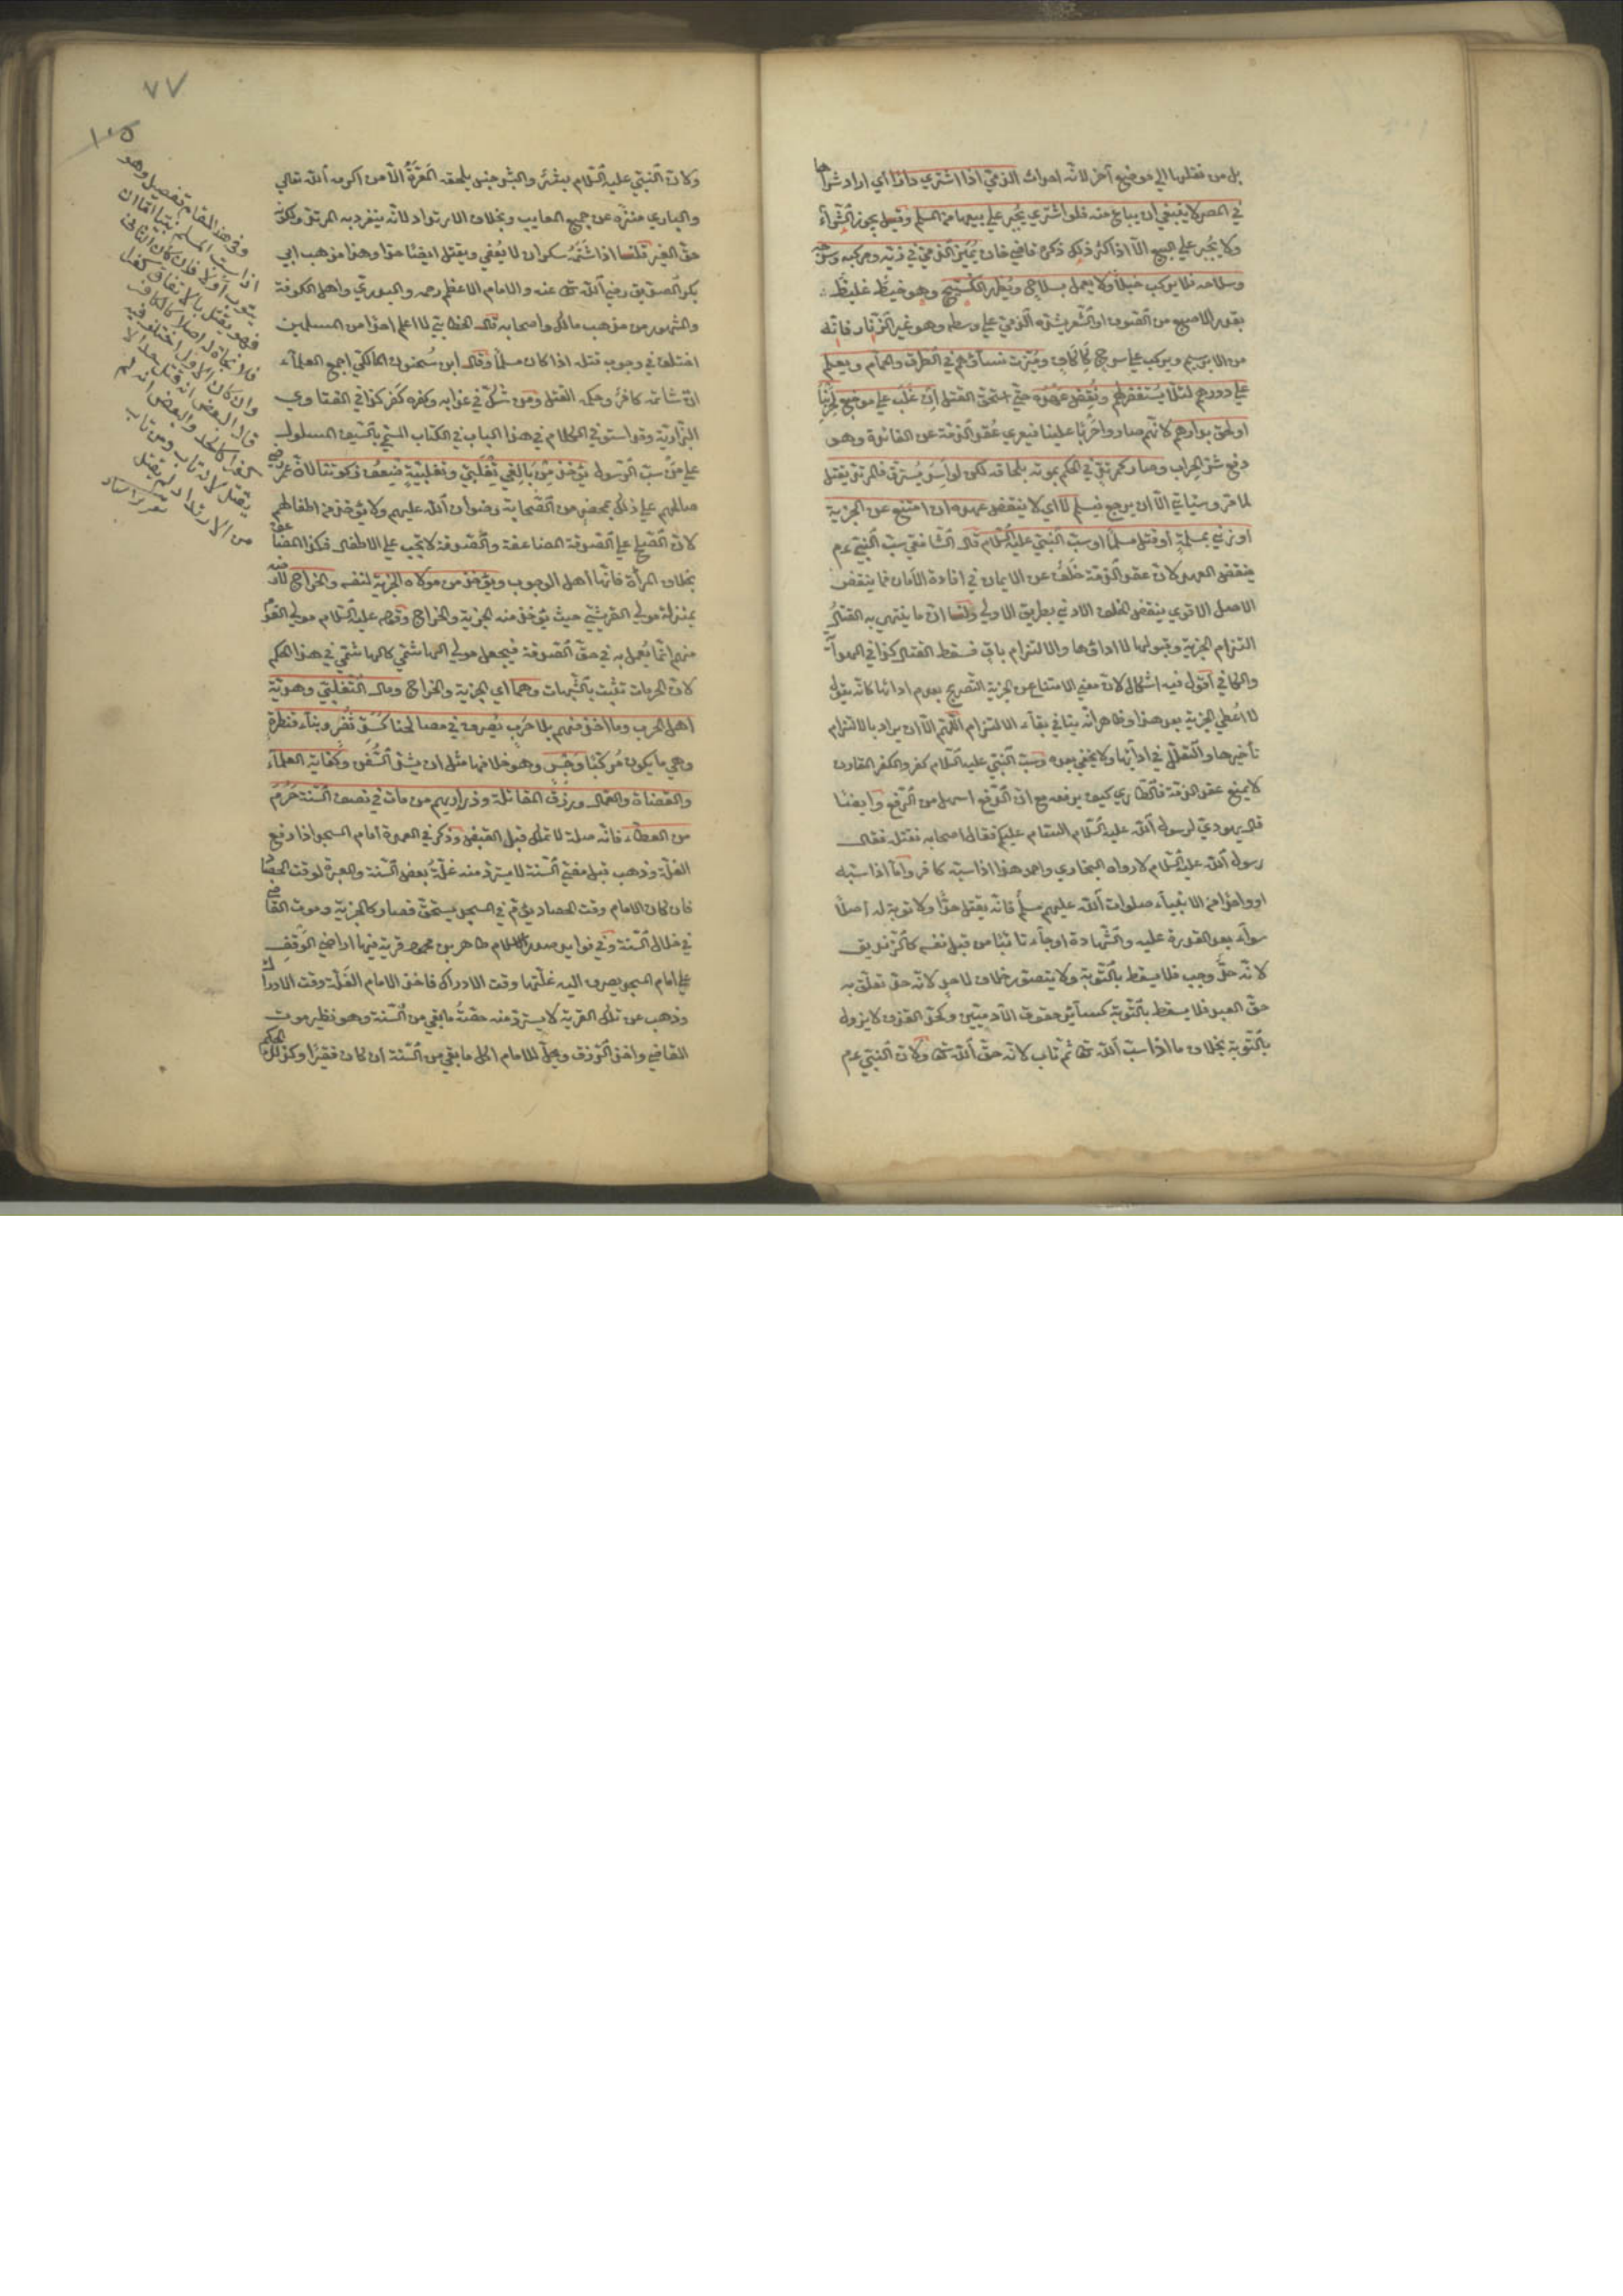 بل من نقلها الى موضع آخر لانه اموات الذمي اذا اشتري دارا اي اراد شراها
في المصر لا ينبغي ان يباع منه فلو اشتري يجبر علي بيعها من المسلم وقيل يجوز الشراء
ولا يجبر علي البيع الا اذا كثر ذلك ذكره قاضي خان يميز الذمي في زيه ومركبه وسرجه
وسلاحه فلا يركب خيلا ولا يعمل بسلاح ويظهر الكستيج وهو خيط غليظ
بقدر الاصبع من الصوف او الشعر يشده الذمي علي وسطه وهو غير الزنار فانه
من الابريسم ويركب علي سرج كاكاف وميزت نساؤهم في الطرق والحمام ويعلم
علي دورهم لئلا يستغفر لهم ونقض عهده حتي استحق القتل ان غلب علي موضع لحربنا
او لحق بدارهم لانهم صاروا حربا علينا فيعري عقد الذمة عن الفائدة وهو
دفع شر الحراب وصار كمرتد في الحكم بموته بلحاقه لكن لو اسر يسترق والمرتد يقتل
لما مر وسياتي الا ان يرجع فيسلم لا اي لا ينتقض عهده ان امتنع عن الجزية
او زني بمسلمة او قتل مسلما او سب النبي عليه السلام قال الشافعي سب النبي عم
ينقض العهد لان عقد الذمة خلف عن الايمان في افادة الامان فما ينقض
الاصل الاقوي ينقض الخلف الادني بطريق الاولي ولنا ان ما ينتهي به القتال
التزام الجزية وقبولها لا اداؤها والالتزام باق فسقط القتال كذا في الهداية
والكافي اقول فيه اشكال لان معني الامتناع عن الجزية التصريح بعدم ادائها كانه يقول
لا اعطي الجزية بعد هذا وظاهر انه ينافي بقاء الالتزام اللهم الا ان يراد بالالتزام
تأخيرها والتعلل في ادائها ولا يخفي بعده وسب النبي عليه السلام كفر والكفر المقارن
لا يمنع عقد الذمة فالطاري كيف يرفعه مع ان الدفع اسهل من الرفع وايضا
قال يهودي لرسول الله عليه السلام السام عليكم فقال اصحابه نقتله فقال
رسول الله عليه السلام لا رواه البخاري واحمد هذا اذا سبه كافر واما اذا سبه
او واحدا من الانبياء صلوات الله عليهم مسلم فانه يقتل حدا ولا توبة له اصلا
سواء بعد القدرة عليه والشهادة او جاء تائبا من قبل نفسه كالزنديق
لانه حد وجب فلا يسقط بالتوبة ولا يتصور خلاف لاحد لانه حق تعلق به
حق العبد فلا يسقط بالتوبة كسائر حقوق الآدميين وكحد القذف لا يزول
بالتوبة بخلاف ما اذا سب الله تعا ثم تاب لانه حق الله تعا ولان النبي عم
٧٧
١٠٥
ولان النبي عليه السلام بشر والبشر جنس يلحقه المعرة الا من اكرمه الله تعالي
والباري منزه عن جميع المعايب وبخلاف الارتداد لانه ينفرد به المرتد ولكونه
حق الغير قلنا اذا شتمه سكران لا يعفي ويقتل ايضا حدا وهذا مذهب ابي
بكر الصديق رضي الله تعا عنه والامام الاعظم رحمه والثوري واهل الكوفة
والمشهور من مذهب مالك واصحابه قال الخطابي لا اعلم احدا من المسلمين
اختلف في وجوب قتله اذا كان مسلما وقال ابن سحنون المالكي اجمع العلماء
ان شاتمه كافر وحكمه القتل ومن شك في عذابه وكفره كفر كذا في الفتاوي
البزازية وقد استوفي الكلام في هذا الباب في الكتاب المسمي بالسيف المسلول
علي من سب الرسول يؤخذ من بالغي تغلبي وتغلبية ضعف زكوتنا لان عمر رضي
صالحهم علي ذلك بمحضر من الصحابة رضوان الله عليهم ولا يؤخذ من اطفالهم
لان الصلح علي الصدقة المضاعفة والصدقة لا تجب علي الاطفال فكذا المضاعفة
بخلاف المرأة فانها اهل الوجوب ويؤخذ من مولاه الجزية لنفسه والخراج لارضه
بمنزلة مولي القريشي حيث يؤخذ منه الجزية والخراج وقوله عليه السلام مولي القوم
منهم انما يعمل به في حق الصدقة فيجعل مولي الهاشمي كالهاشمي في هذا الحكم
لان الحرمات تثبت بالشبهات وهما اي الجزية والخراج ومال التغلبي وهدية
اهل الحرب وما اخذ منهم بلا حرب يصرف في مصالحنا كسد ثغر وبناء قنطرة
وهي ما يكون مركبا وجسر وهو خلافها مثل ان يشد السفن وكفاية العلماء
والقضاة والعمال ورزق المقاتلة وذراريهم من مات في نصف السنة حرم
من العطاء فانه صلة لا تملك قبل القبض وذكر في العمدة امام المسجد اذا رفع
الغلة وذهب قبل مضي السنة لا يسترد منه غلة بعض السنة والعبرة لوقت الحصاد
فان كان الامام وقت الحصاد يؤم في المسجد يستحق فصار كالجزية وموت القاضي
في خلال السنة وفي فوايد صدر الاسلام طاهر بن محمود قرية فيها اراضي الوقف
علي امام المسجد يصرف اليه غلتها وقت الادراك فاخذ الامام الغلة وقت الادراك
وذهب عن تلك القرية لا يسترد منه حصة ما بقي من السنة وهو نظير موت
القاضي واخذ الرزق ويحل للامام اكل ما بقي من السنة ان كان فقيرا وكذلك الحكم
وفي هذا المقام تفصيل وهو
اذا سب المسلم نبيا اما ان
يتوب اولا فان كان الثاني
فهو يقتل بالاتفاق كفرا
فلا نجاة له اصلا كالكافر
وان كان الاول اختلفوا فيه
قال البعض انه قتل حدا لا
كفرا كالحد والبعض انه لم
يقتل لانه تاب ومن تاب
من الارتداد لم يقتل